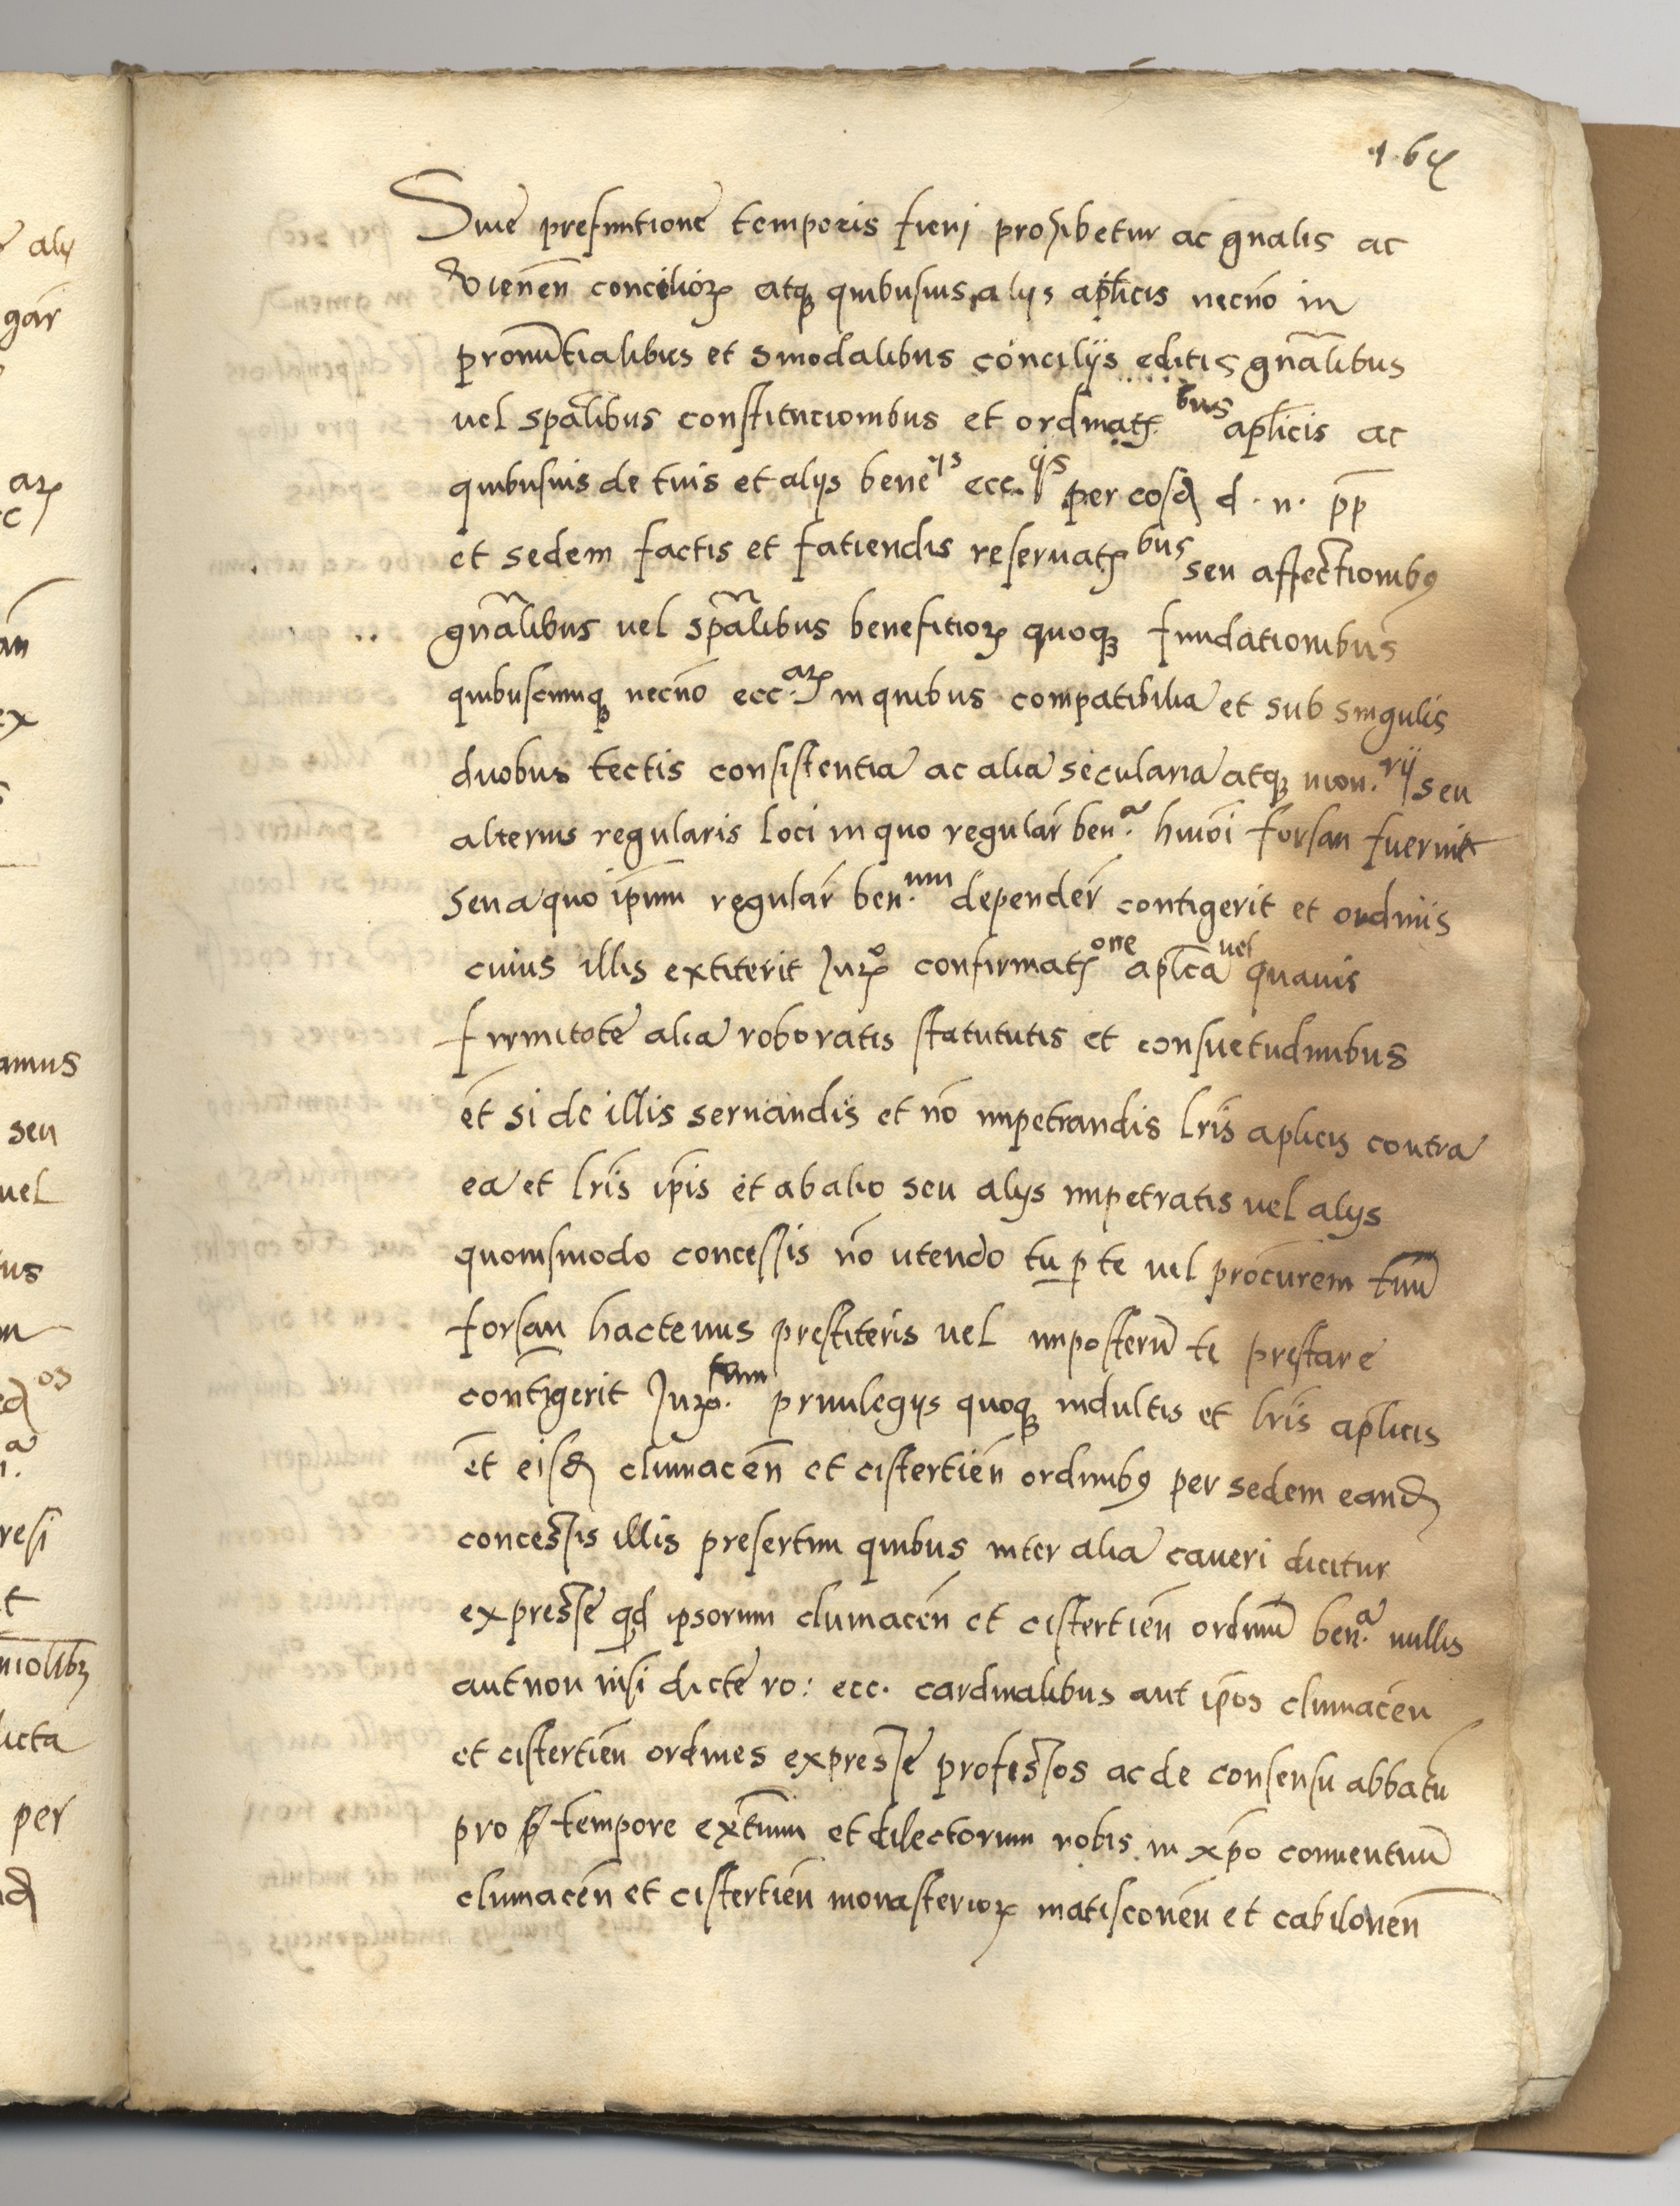 aly
gar̄
arꝝ
ex
amus
seu
uel
us
os
resi
t
niolibꝫ
dicta
per
Siue prefinitione temporis fieri prohibetur ac gnalis ac
Vienen̄ conciliorꝝ atqꝫ quibusuis alijs aplicis necnō in
prouintialibus et sinodalibus concilijs editis gnalibus
uel spalibus constitucionibus et ordinatꝭ bus aplicis ac
quibusuis de tuis et alijs bene ijs ecc. ijs per eosd d. n. pp
et sedem factis et fatiendis reseruatꝭ bus seu affectionibꝰ
gnalibus uel spalibus benefitiorꝝ quoqꝫ fundationibus
quibuscunqꝫ necnō ecc. arꝝ in quibus compatibilia et sub singulis
duobus tectis consistentia ac alia secularia atqꝫ mon. rij seu
alterius regularis loci in quo regular̄ ben. a hmōi forsan fuerint
seu a quo ipm̄ regular̄ ben. um dependēr contigerit et ordinis
cuius illis extiterit Jurꝝ confirmatꝭ one aplica uel quauis
firmitate alia roboratis statututis et consuetudinibus
et̄ si de illis seruandis et nō impetrandis lris aplicis contra
ea et lris ip̄is et̄ ab alio seu alijs impetratis uel alijs
quouismodo concessis nō utendo tu ꝑ te uel procurem tuū
forsan hactenus prestiteris uel imposterū te prestare
contigerit Juro. tum priuilegijs quoqꝫ indultis et lris aplicis
et̄ eisd cluniacen̄ et cistertien̄ ordinibꝰ per sedem eand
concessis illis presertim quibus inter alia caueri dicitur
expresse qd ipsorum cluniacen̄ et cistertien̄ ordinū ben. a nullis
aut non nisi dicte ro: ecc. cardinalibus aut ip̄os cluniacen̄
et cistertien̄ ordines expresse professos ac de consensu abbatū
pro tempore extm̄m et dilectorum nobis in xpo conuentuū
cluniacen̄ et cistertien̄ monasteriorꝝ matisconen̄ et cabilonen̄